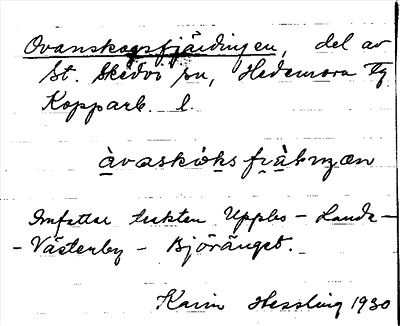 Ovanskogsfjärdingen, del av
St. Skedvi sn, Hedemora tg
Kopparb. l.
Omfattar trakten Uppbo - Landa-
- Västerby - Björänget.
Karin Hessling 1930